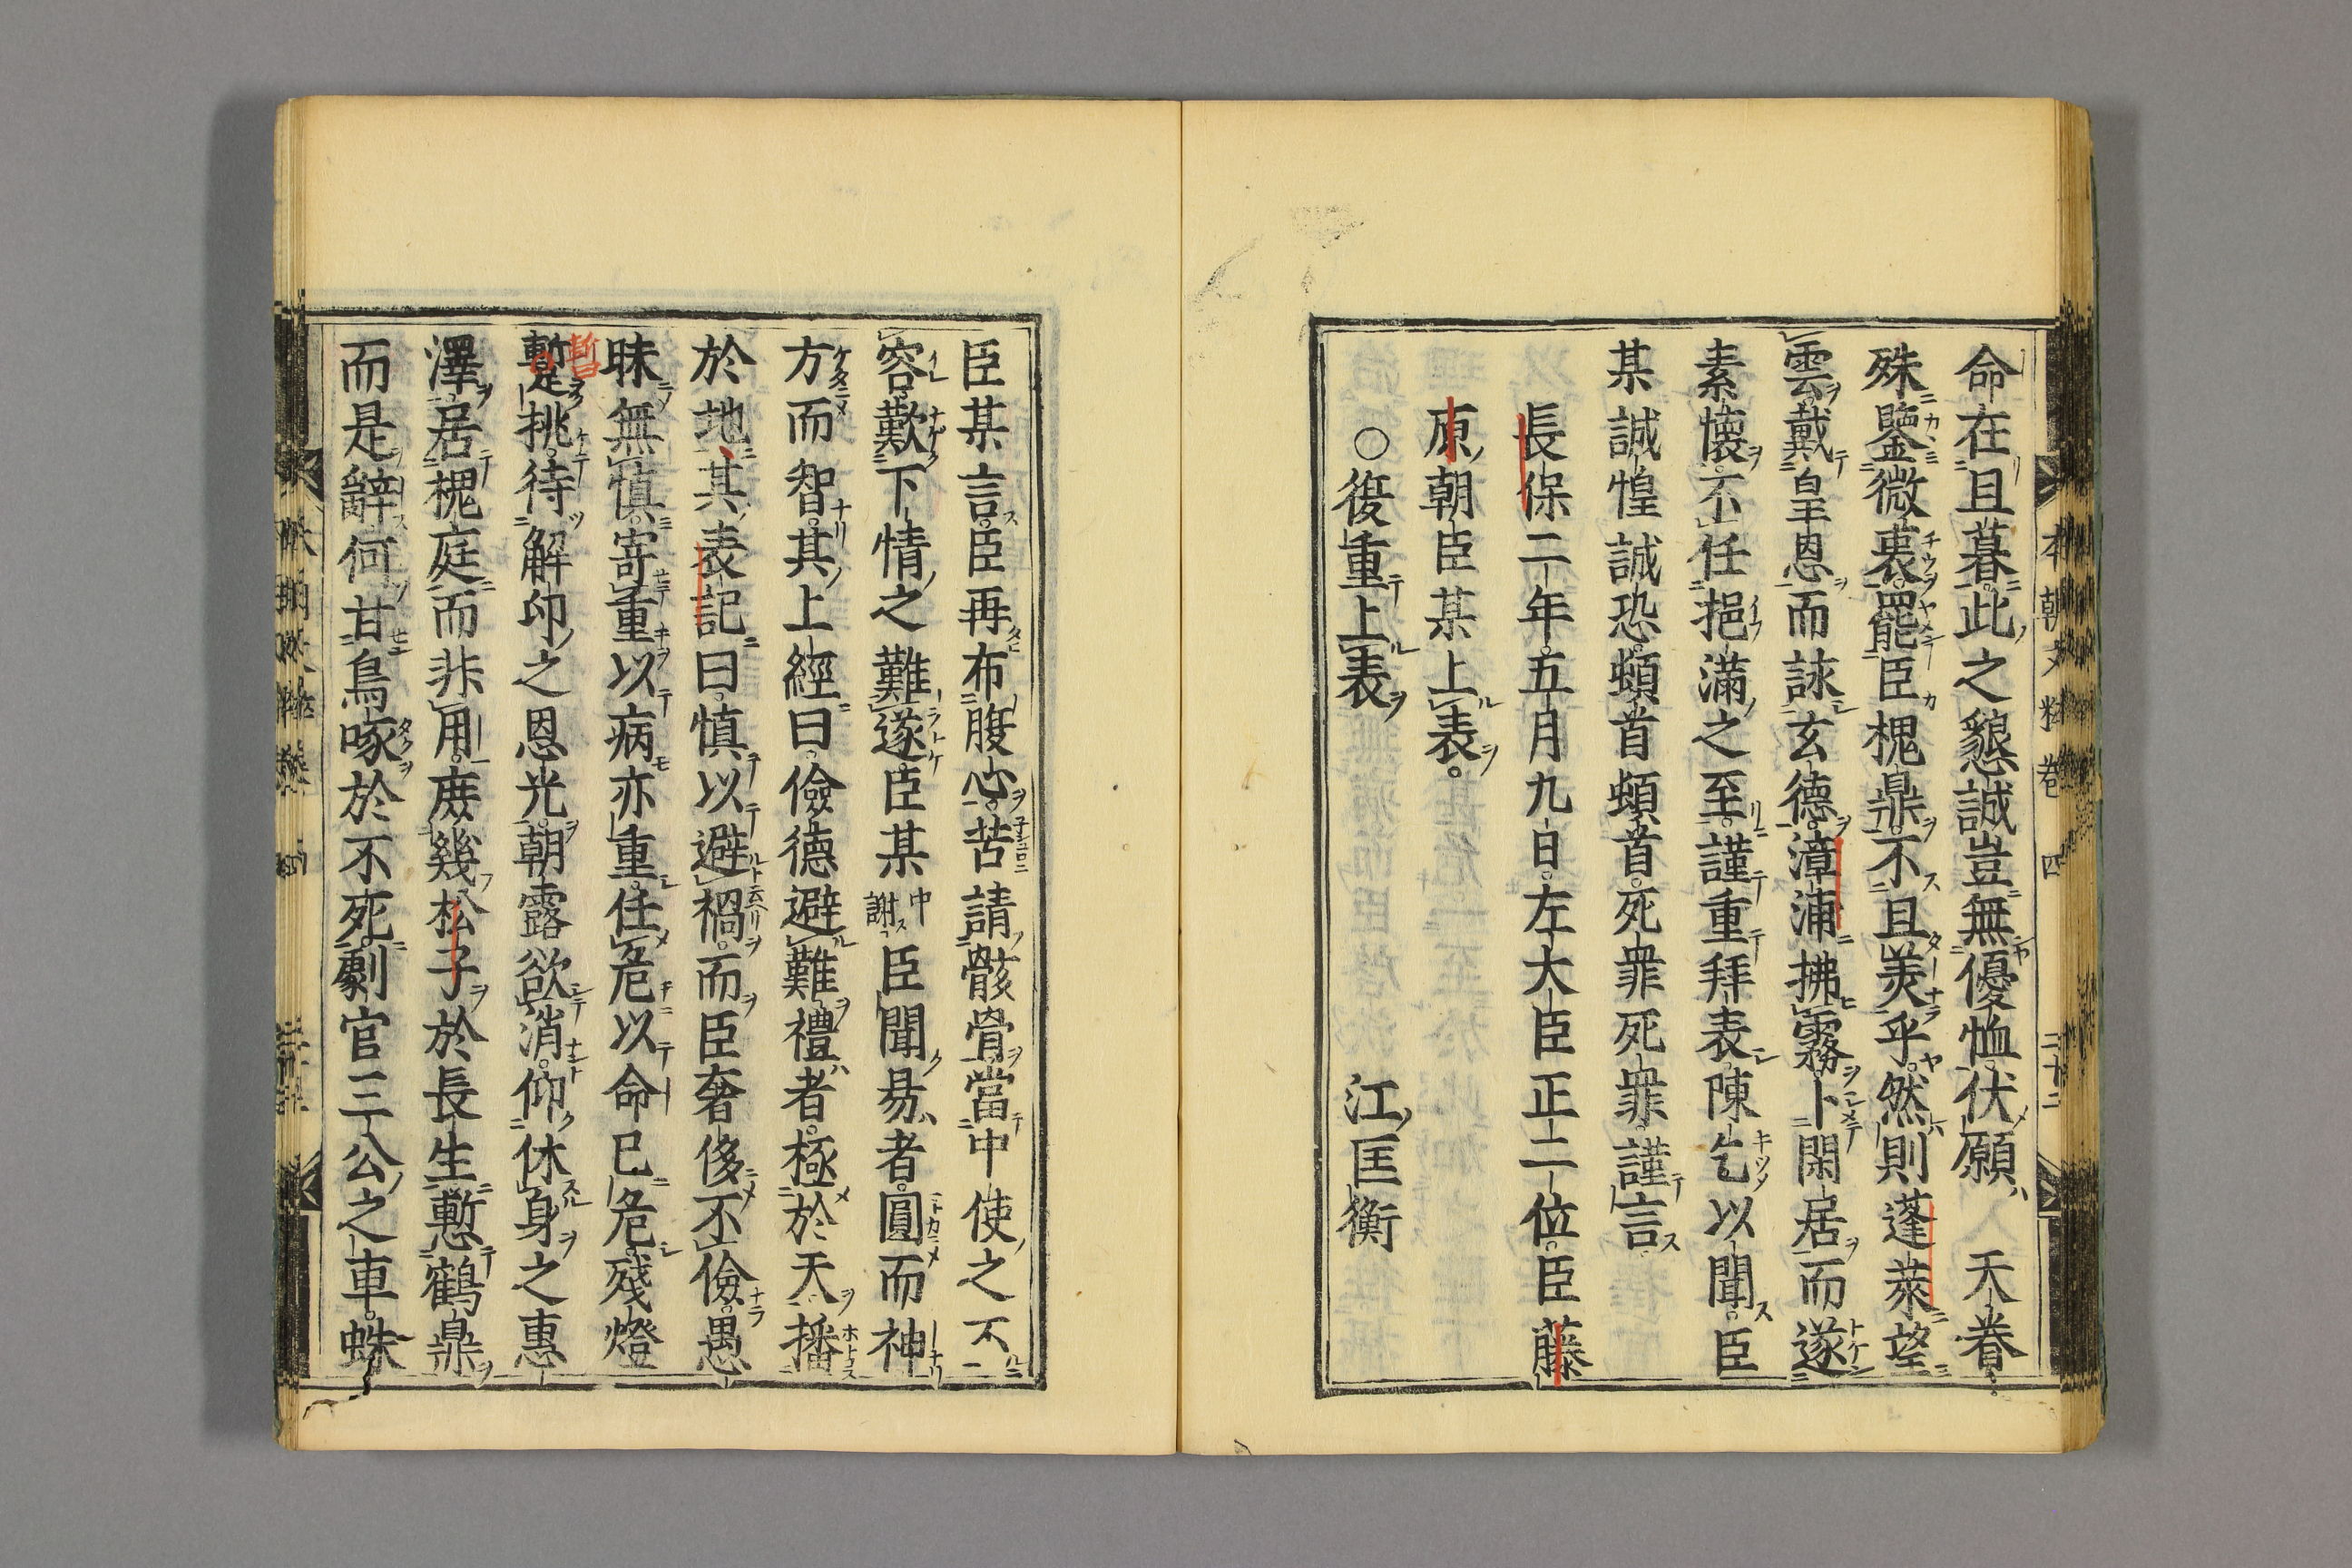 命在且暮此之懇誠豈無優恤伏願天眷
殊鑒微衷罷臣槐鼎不且美乎然則蓬萊望
雲戴皇恩而詠玄德漳浦拂霧卜閑居而遂
素懷不任挹滿之至謹重拜表陳乞以聞臣
某誠惶誠恐頓首頓首死罪死罪謹言
長保二年五月九日左大臣正二位臣藤
原朝臣某上表
○復重上表 江匡衡
本朝文粹卷四 二十二
臣某言臣再布腹心苦請骸骨當中使之不
容歎下情之難遂臣某中謝臣聞昜者圓而神
方而智其上經曰儉德避難禮者極於天播
於地其表記曰慎以避禍而臣奢侈不儉愚
昧無慎寄重以病亦重任危以命已危殘燈
蹔挑待解印之恩光朝露欲消仰休身之惠
澤居槐庭而非用庶幾松子於長生慙鶴鼎
而是辭何甘鳥啄於不死劇官三公之車蛛
暫